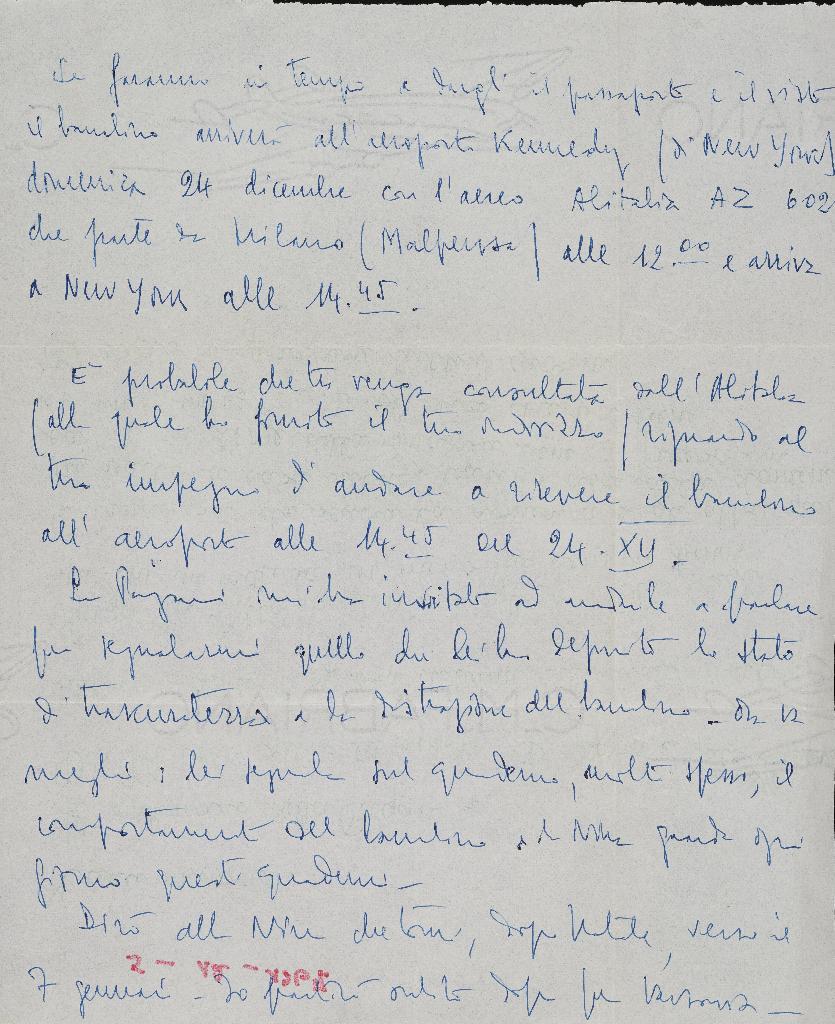 Se faranno in tempo a dargli il passaporto e il visto
il bambino arriverà all'aeroporto Kennedy (di New York)
domenica 24 dicembre con l'aereo Alitalia AZ 602
che parte da Milano (Malpensa) alle 12.00 e arriva
a New York alle 14.45.
E' probabile che tu venga consultata dall'Alitalia
(alla quale ho fornito il tuo indirizzo) riguardo al
tuo impegno di andare a ricevere il bambino
all'aeroporto alle 14.45 del 24.XII.
La mi ha invitato ad andarle a parlare
per segnalarmi quello che lei ha definito lo stato
di trascuratezza e la distrazione del bambino. Ora va
meglio; lei segnala sul quaderno, molto spesso, il
comportamento del bambino e la Nina guarda ogni
giorno questi quaderni.
Dirò alla Nina che torni, dopo Natale, verso il
7 gennaio. Io partirò subito dopo per